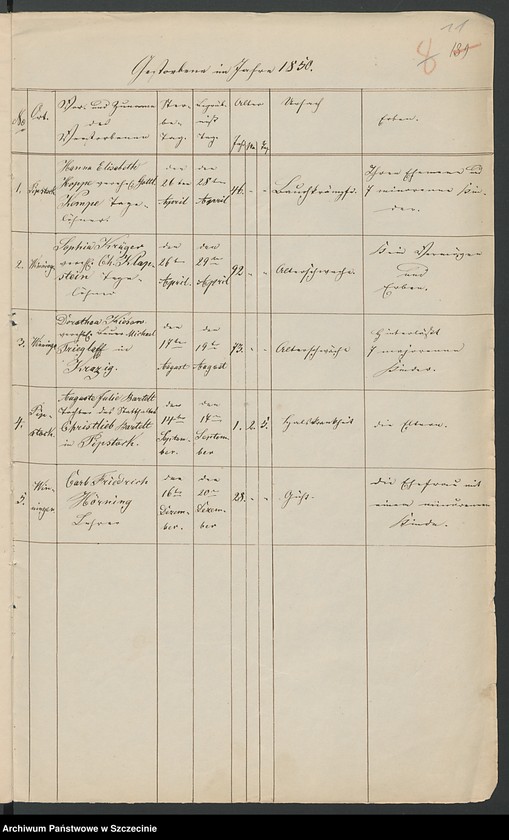 11
8 189
Gestorbene im Jahre 1850.
No. Ort. Vor- und Zuname des Verstorbenen Sterbe-Tag. Begräbniß Tag. Alter Jahr Mo. Tg. Ursach Erben.
1. Pipstock
Hanna Elisabeth
Hoppe verehl. Gottl.
Kempe Tage-
löhner
den
26ten
April
den
28ten
April
46. - -
Ihren Ehemann und
7 minorenne Kin-
der.
2. Winninge
Sophia Krüger
verehl. Ch. Klap-
stein Tage-
löhner
den
26ten
April.
den
29ten
April
92 - -
Altersschwäche
Kein Vermögen
und
Erben.
3. Winninge
Dorothea
verehl. Bauer Michael
Frieglaff in
Krazig.
den
17ten
August
den
19ten
August
73. - -
Altersschwäche
Hinterläßt
7 majorenne
Kinder.
4. Pip-
stock.
Auguste Julie Bartelt
Tochter des Statthalters
Christlieb Bartelt
in Pipstock.
den
14ten
Septem-
ber.
den
17ten
Septem-
ber
1. 2. 5.
Halskrankheit
die Eltern.
5. Win-
ningen
Carl Friedrich
Hörning
Lehrer
den
16ten
Dezem-
ber.
den
20ten
Dezem-
ber
28. - -
die Ehefrau mit
einem minorennen
Kinde.
Archiwum Państwowe w Szczecinie